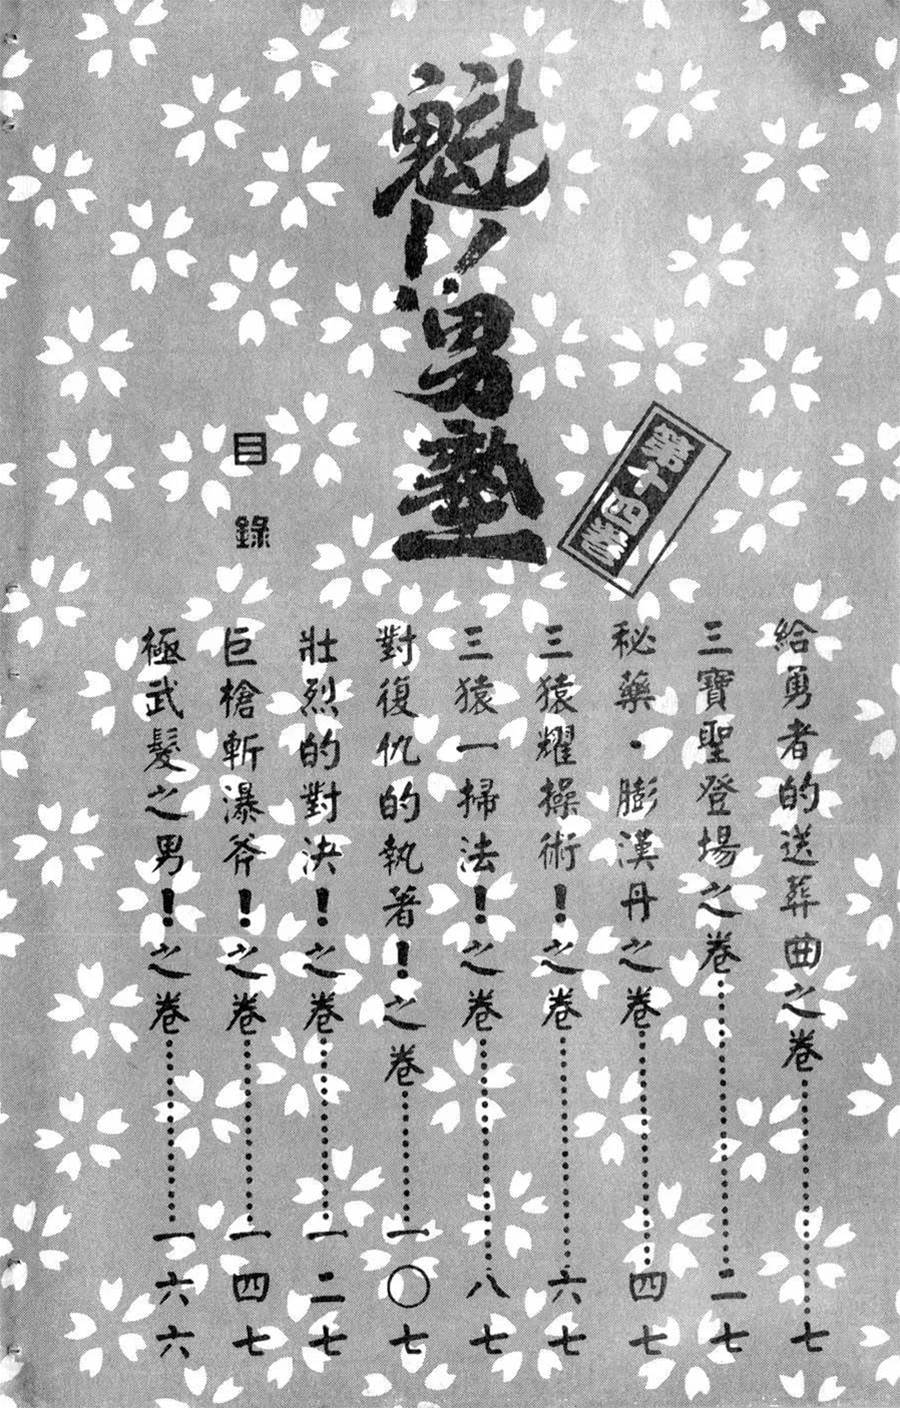 魁!!男塾
第十四卷
目錄
給勇者的送葬曲之卷………七
三寶聖登場之卷………二七
秘藥・膨漢丹之卷………四七
三猿耀操術！之卷………六七
三猿一掃法！之卷………八七
對復仇的執著！之卷………一〇七
壯烈的對決！之卷………一二七
巨槍斬瀑斧！之卷………一四七
極武髮之男！之卷………一六六